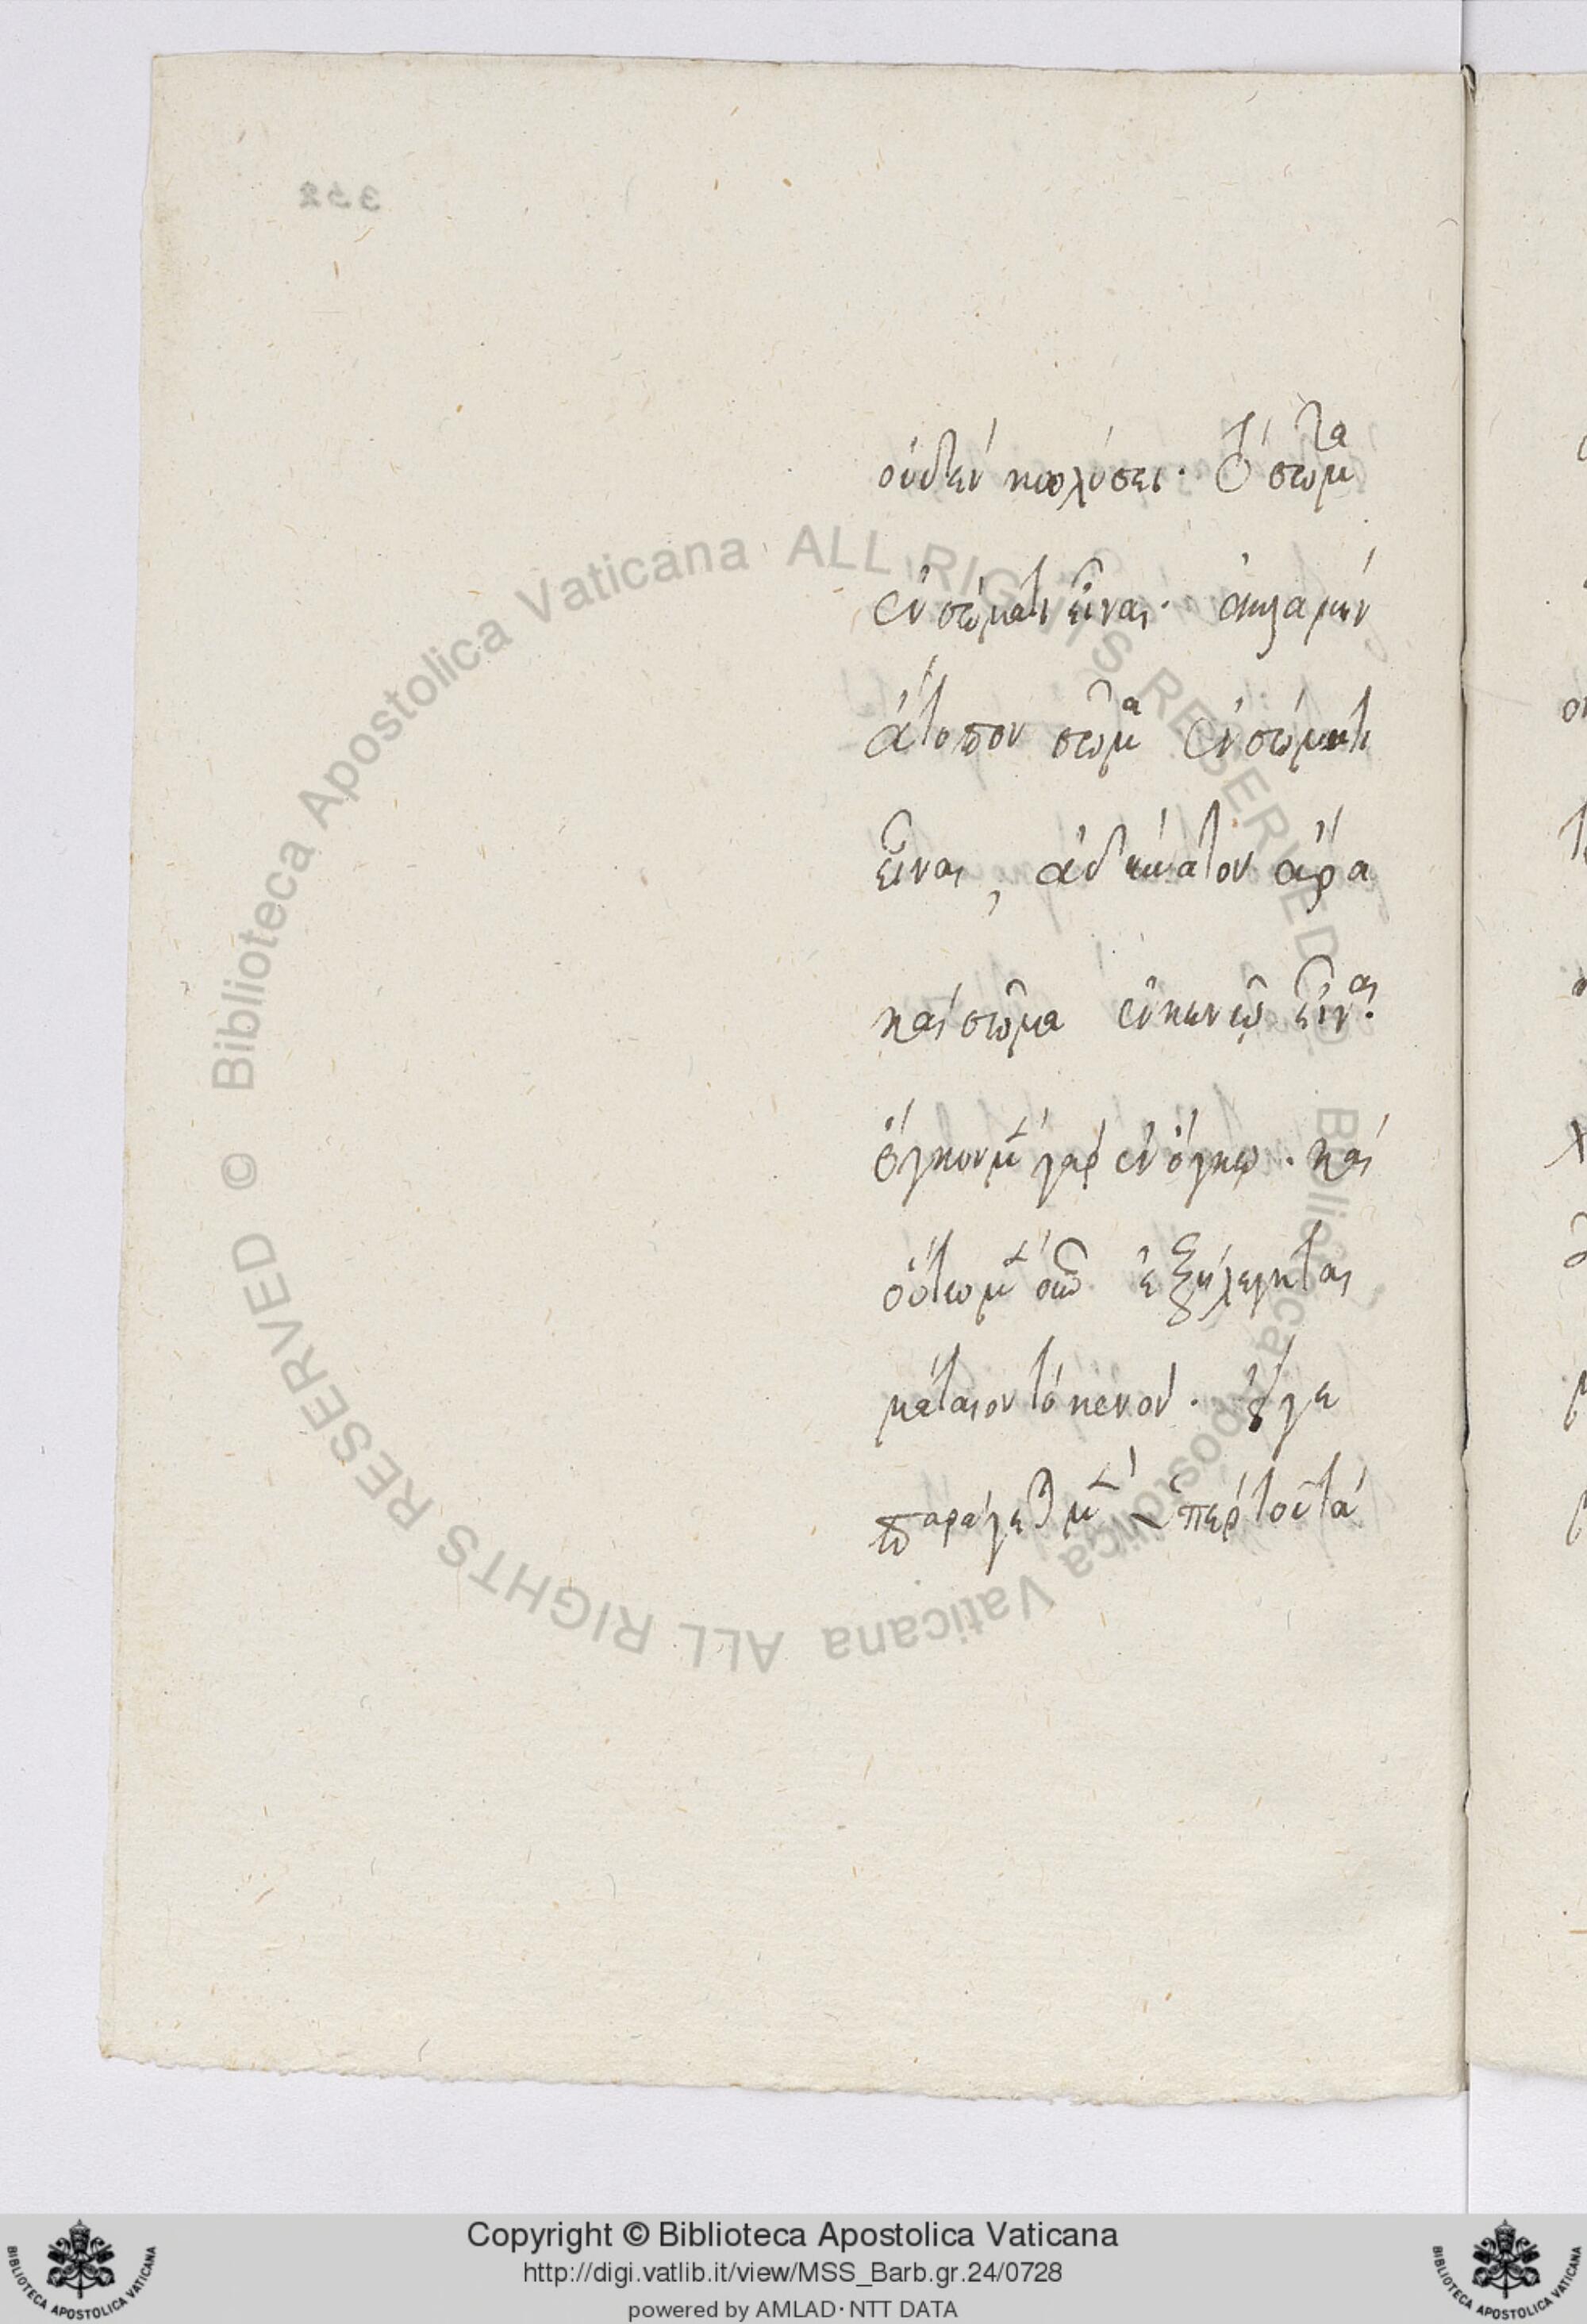 352
οὐδὲν κωλύσει. Τὸ σῶμα τὰ
ἐν σώματι εἶναι. ἀλλὰ μὴν
ἄτοπον σῶμα ἐν σώματι
εἶναι, ἀδύνατον ἄρα
καὶ σῶμα ἐν κενῷ εἶναι.
ὄγκον μὲν γὰρ ἐν ὄγκῳ. καὶ
οὕτω μὲν οὖν ἐξελήλεγκται
μάταιον τὸ κενόν.
ὑπὲρ τοῦ τὰ
Biblioteca Apostolica Vaticana ALL RIGHTS RESERVED ©
Biblioteca Apostolica Vaticana ALL RIGHTS RESERVED ©
Copyright © Biblioteca Apostolica Vaticana
http://digi.vatlib.it/view/MSS_Barb.gr.24/0728
powered by AMLAD·NTT DATA
BIBLIOTECA APOSTOLICA VATICANA
BIBLIOTECA APOSTOLICA VATICANA